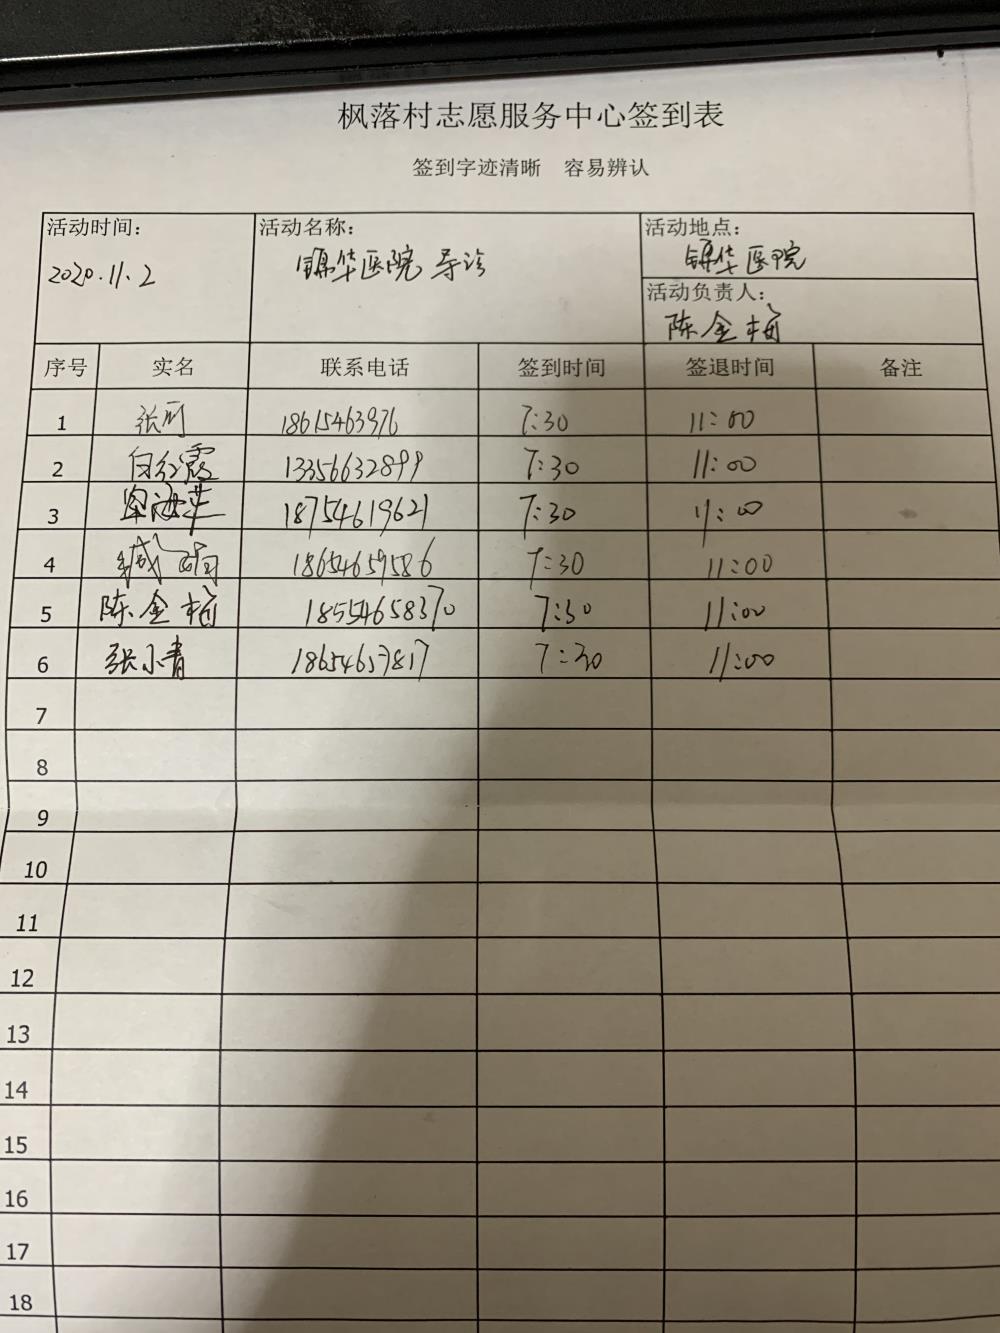 枫落村志愿服务中心签到表
签到字迹清晰 容易辨认
活动时间： 活动名称： 活动地点：
2020.11.2 锦华医院导诊 锦华医院
活动负责人：
陈金梅
序号 实名 联系电话 签到时间 签退时间 备注
1 张 18615463976 7:30 11:00
2 白红霞 13356632899 7:30 11:00
3 18754619621 7:30 11:00
4 18654659586 7:30 11:00
5 陈金梅 18554658370 7:30 11:00
6 张小青 18654657817 7:30 11:00
7
8
9
10
11
12
13
14
15
16
17
18